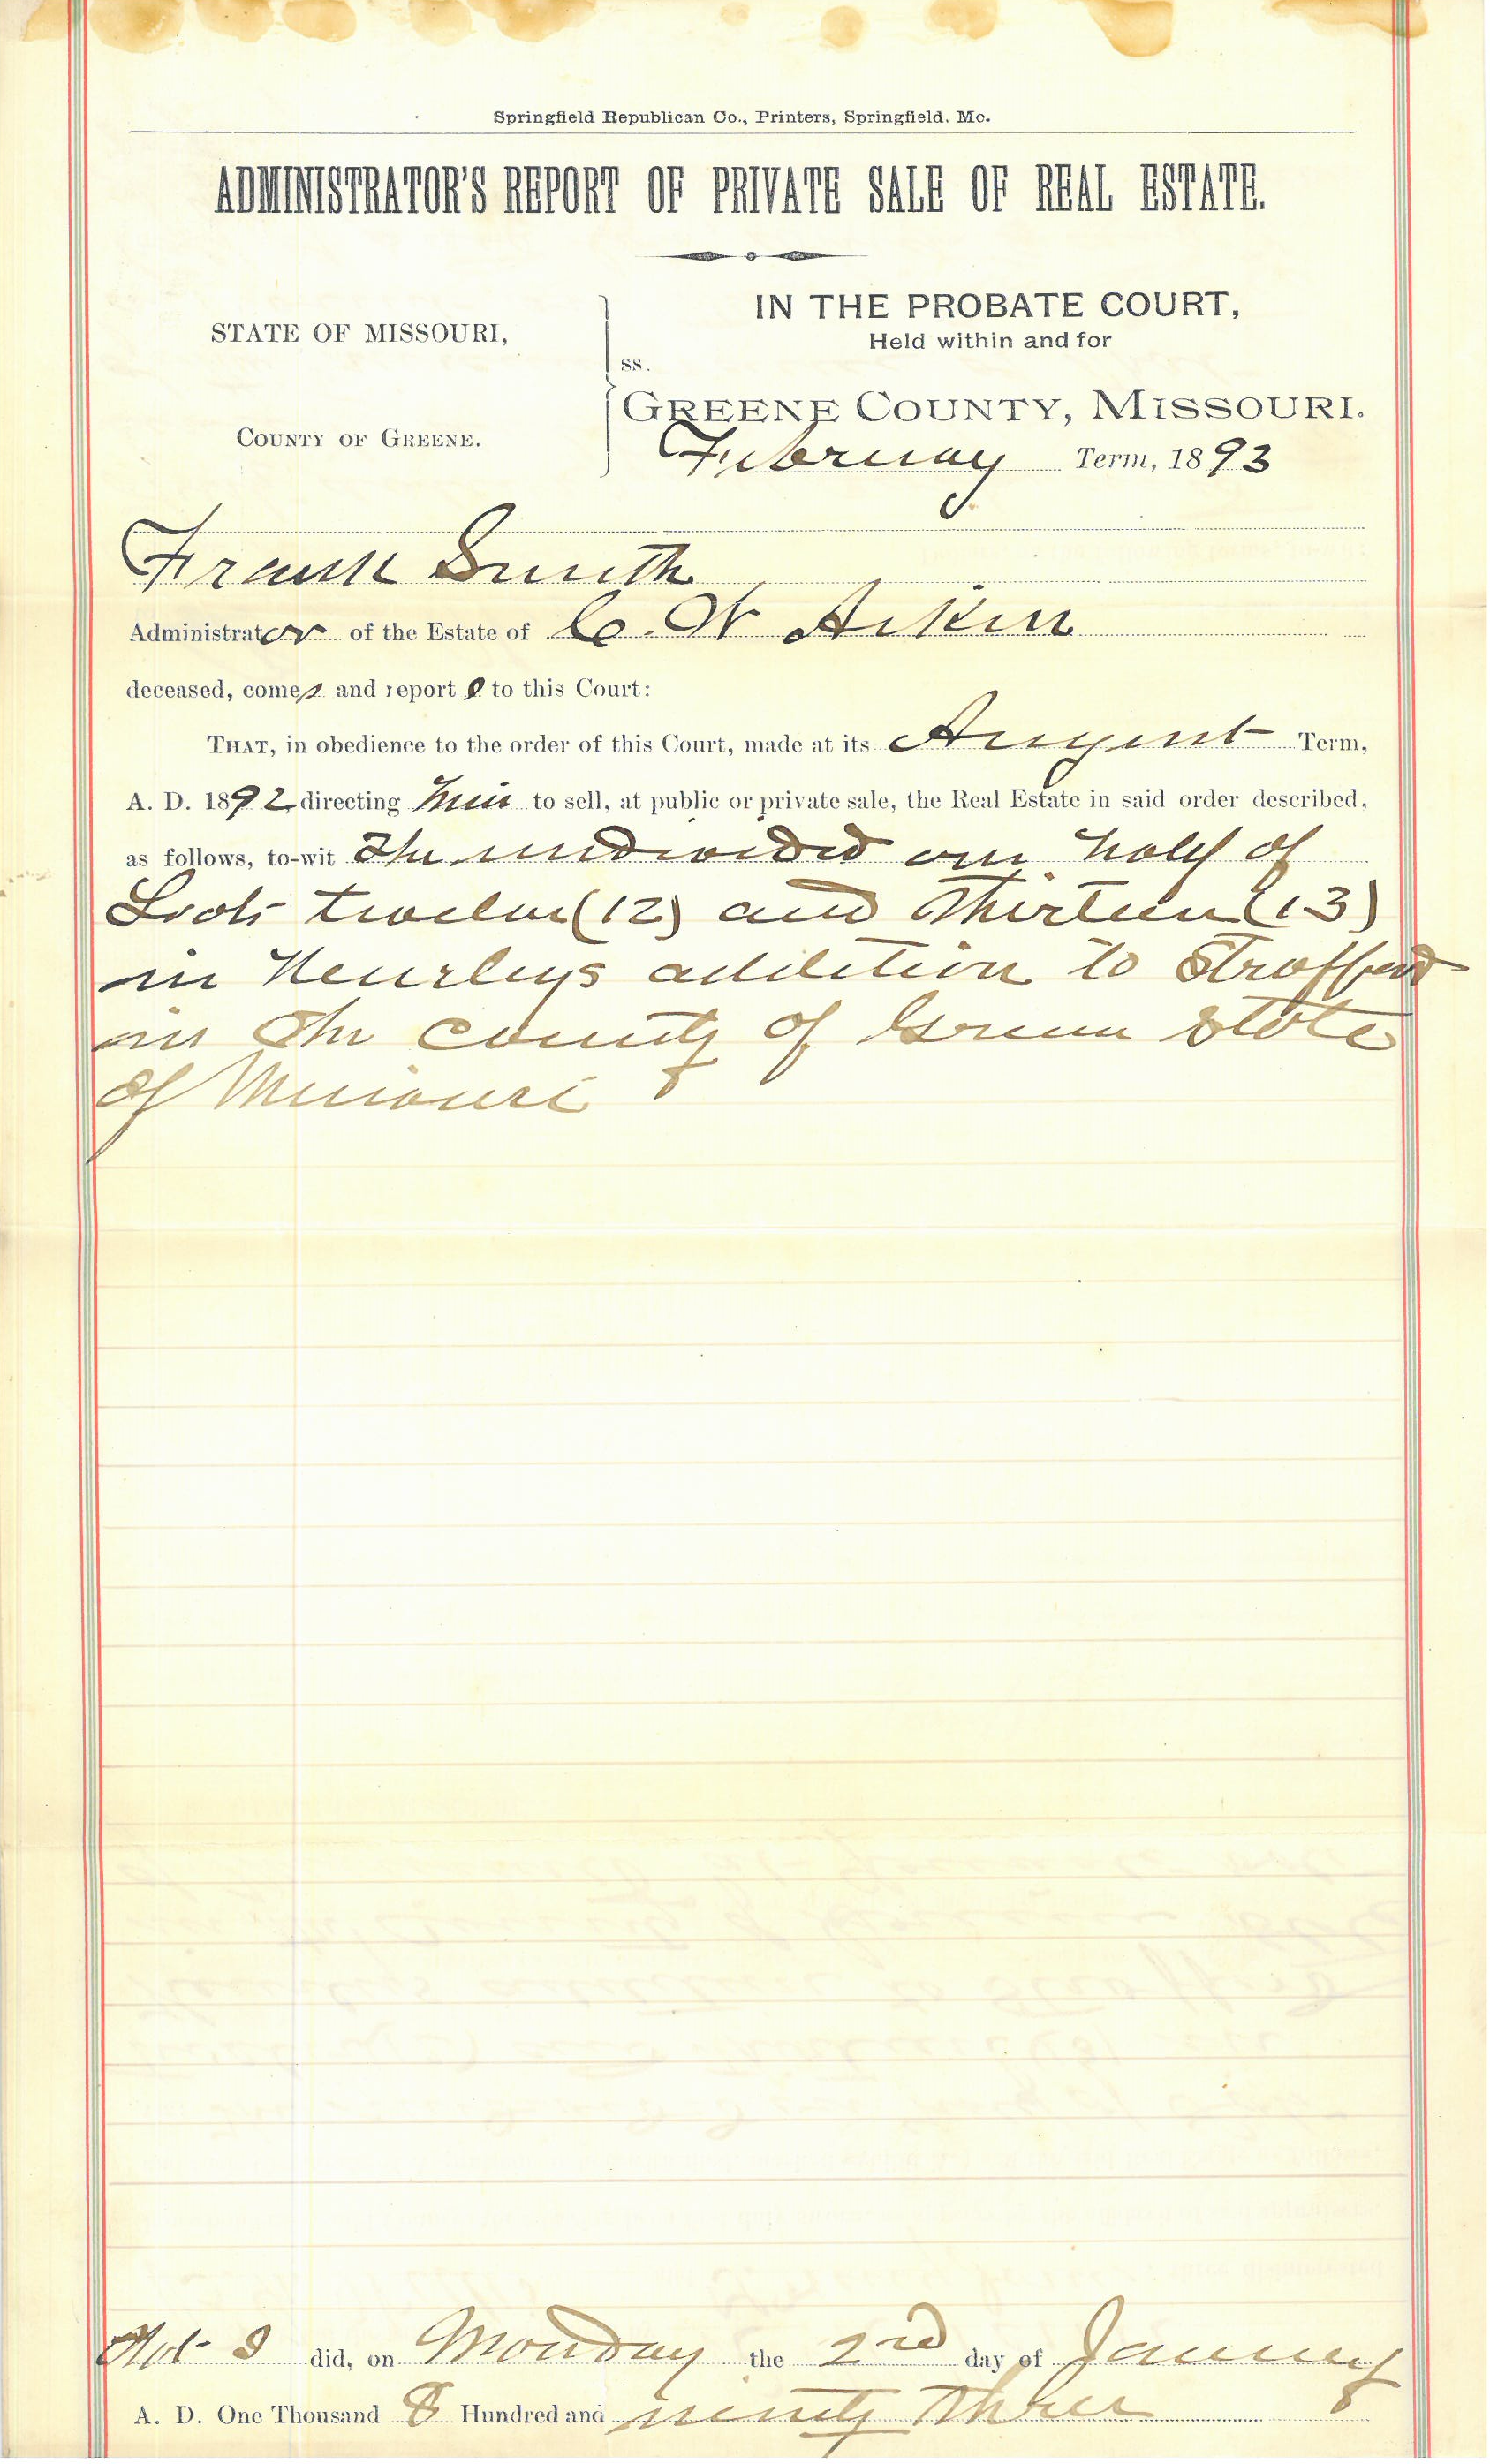 Springfield Republican Co., Printers, Springfield, Mo.
ADMINISTRATOR'S REPORT OF PRIVATE SALE OF REAL ESTATE.
IN THE PROBATE COURT,
STATE OF MISSOURI,
Held within and for
ss.
GREENE COUNTY, MISSOURI.
COUNTY OF GREENE.
February Term, 1893
Frank Smith
Administrator of the Estate of C. W Aikin
deceased, comes and reports to this Court:
THAT, in obedience to the order of this Court, made at its August Term,
A. D. 1892 directing him to sell, at public or private sale, the Real Estate in said order described,
as follows, to-wit The undivided one half of
Lots twelve (12) and Thirteen (13)
in addition to Strafford
in The county of Green State
of Missouri
That I did, on Monday the 2nd day of January
A. D. One Thousand 8 Hundred and ninety Three